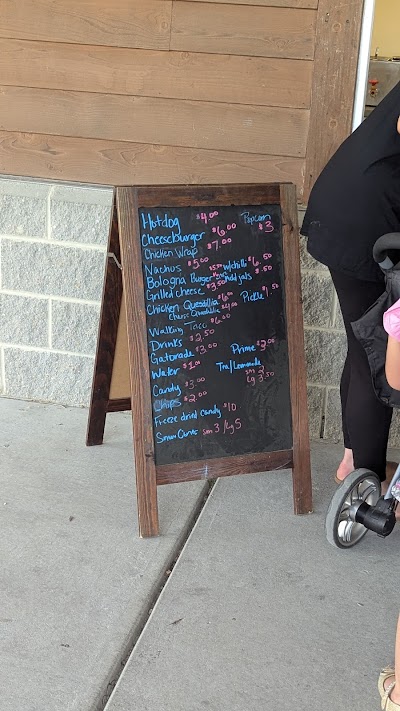 Hotdog $4.00 Popcorn
Cheeseburger $6.00 $3
Chicken Wrap $7.00
Nachos $5.00 w/chili $6.50
Bologna Burger $5.00 Add jals $.50
Grilled Cheese $3.50
Chicken Quesadilla $6.00 Pickle $1.50
Cheese Quesadilla $4.00
Walking Taco $6.00
Drinks $2.50
Gatorade $3.00 Prime $3.00
Water $1.00 Tea/Lemonade
sm 2
Candy $3.00 lg 3.50
Chips $2.00
Freeze dried candy $10
Snow Cones sm 3/lg 5